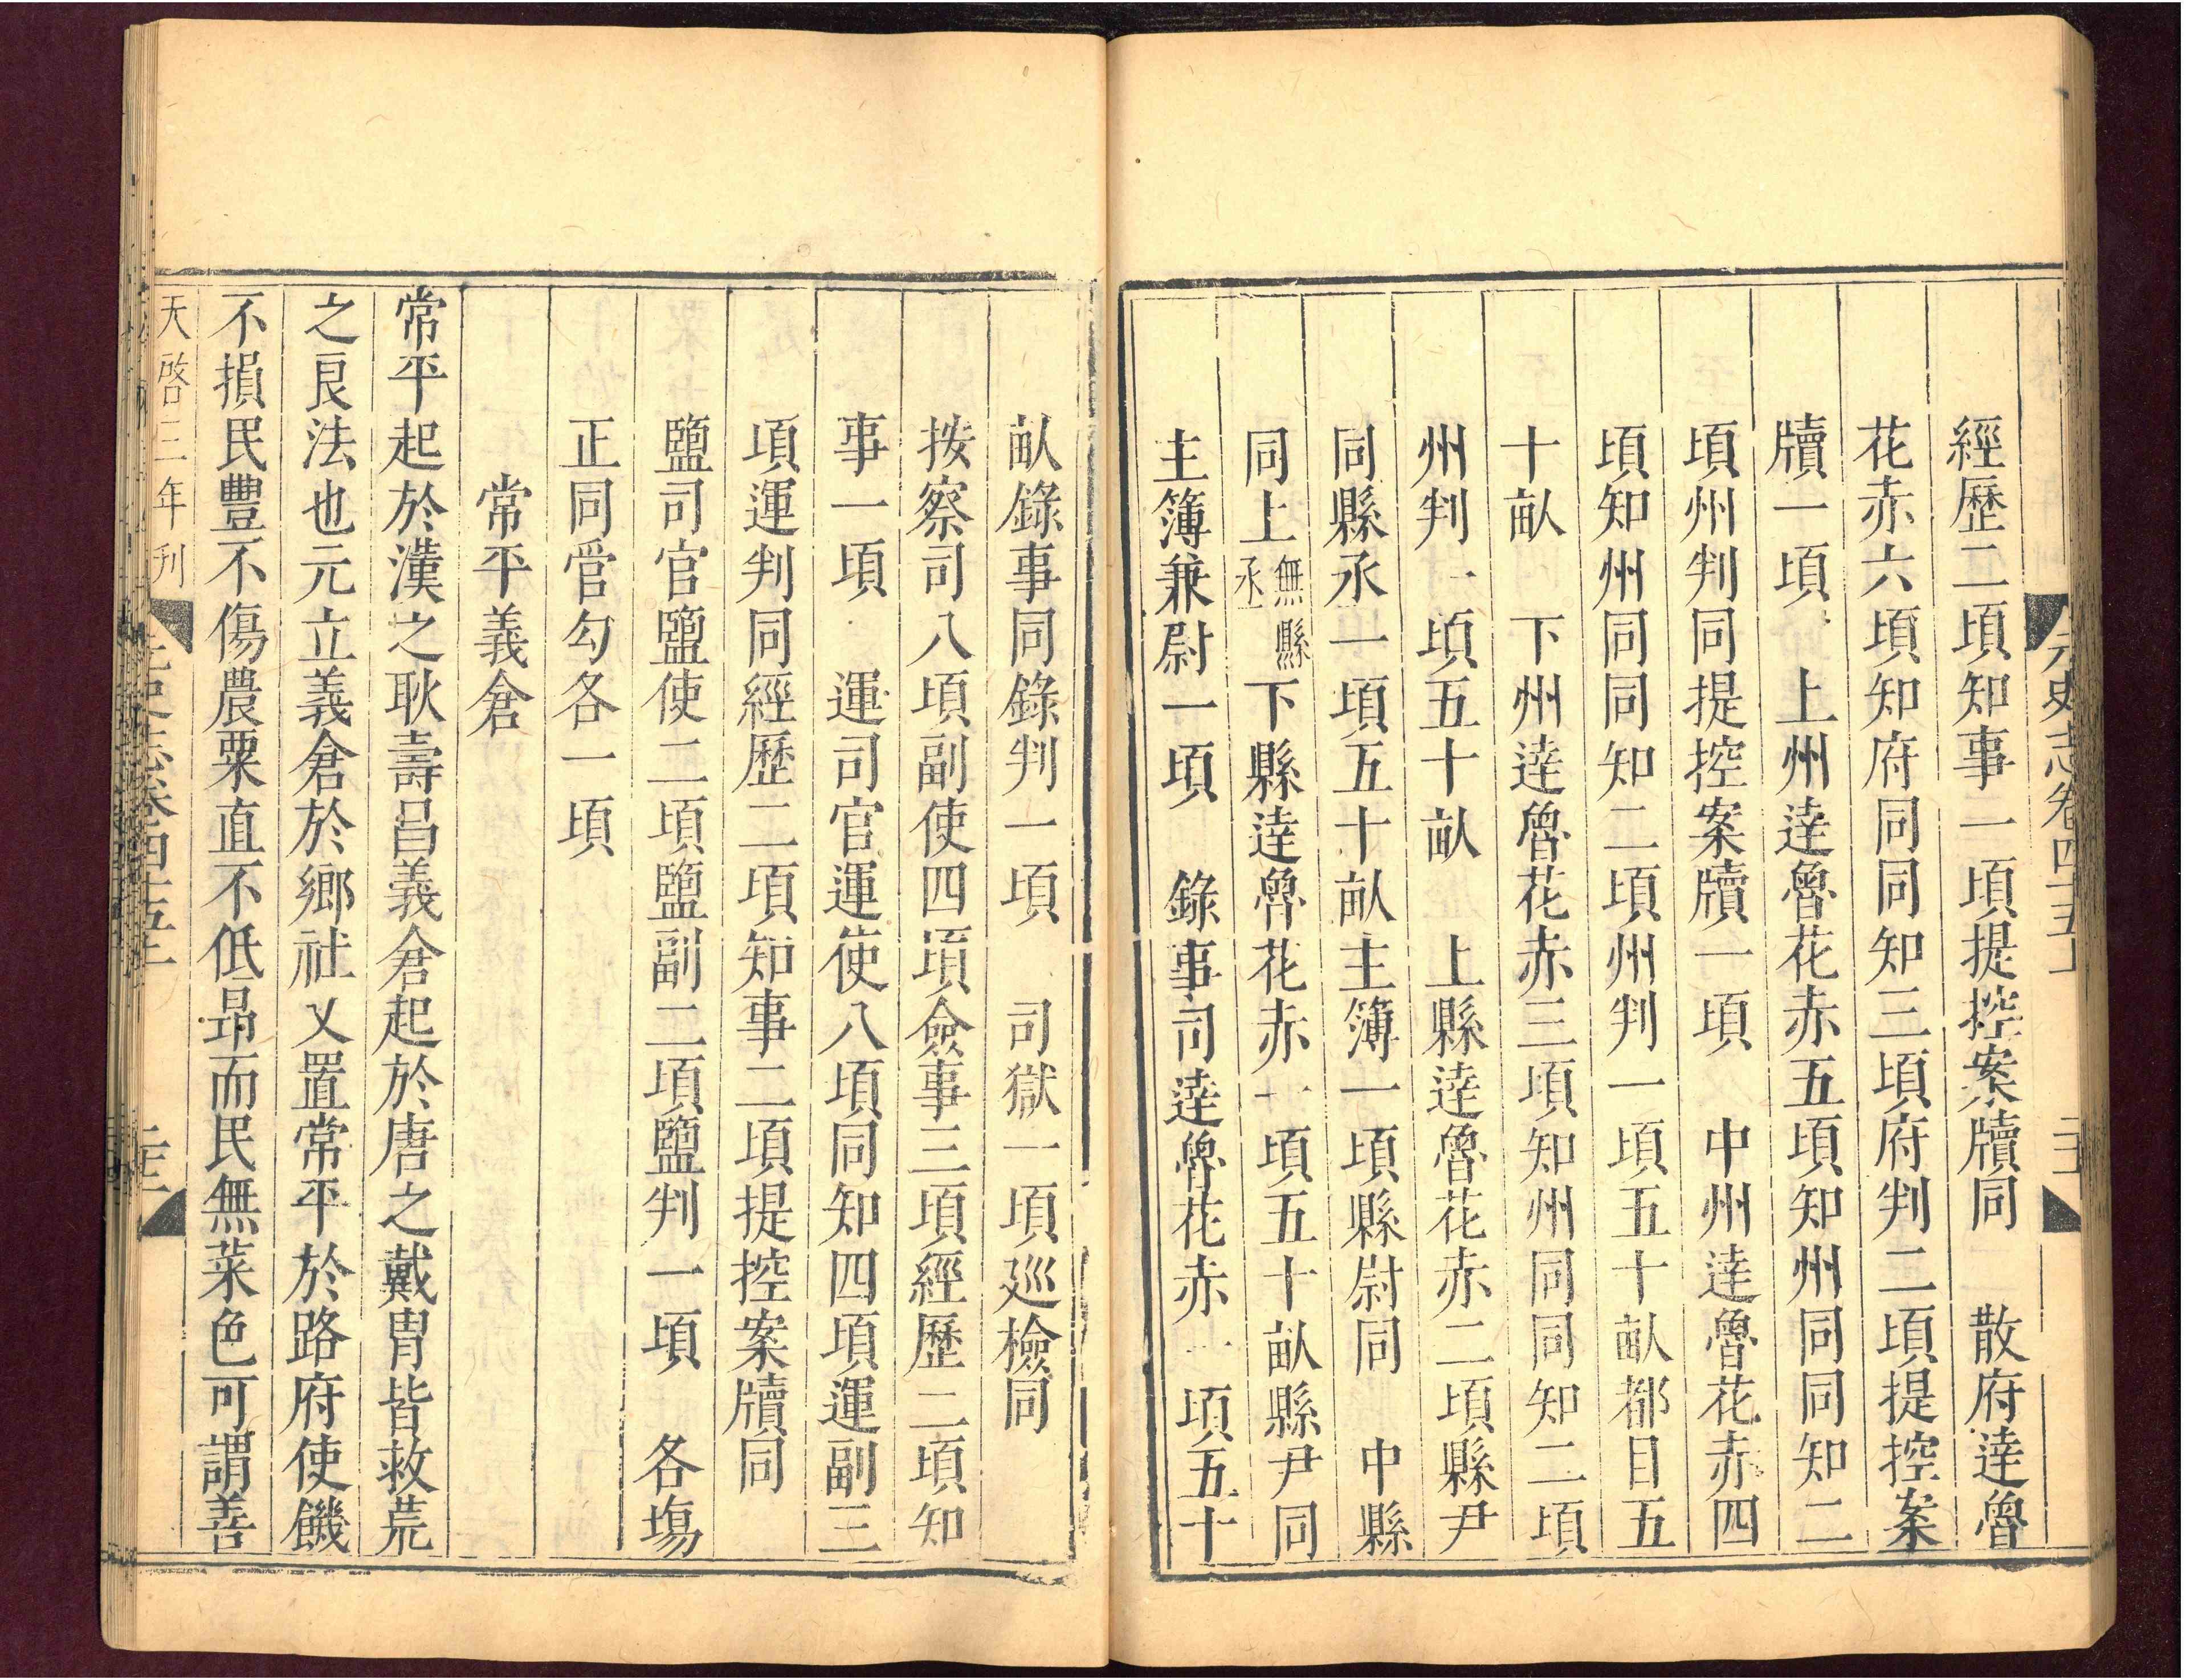 元史志卷四十五上
經歷二項知事一項提控案牘同　散府達魯
花赤六項知府同同知三項府判二項提控案
牘一項　上州達魯花赤五項知州同同知二
項州判同提控案牘一項　中州達魯花赤四
項知州同同知二項州判一項五十畝都目五
十畝　下州達魯花赤三項知州同同知二項
州判一項五十畝　上縣達魯花赤二項縣尹
同縣丞一項五十畝主簿一項縣尉同　中縣
同上無縣丞下縣達魯花赤一項五十畝縣尹同
主簿兼尉一項　錄事司達魯花赤一項五十
畝錄事同錄判一項　司獄一項巡檢同
按察司八項副使四項僉事三項經歷二項知
事一項　運司官運使八項同知四項運副三
項運判同經歷二項知事二項提控案牘同
鹽司官鹽使二項鹽副二項鹽判一項　各塲
正同管勾各一項
常平義倉
常平起於漢之耿壽昌義倉起於唐之戴胄皆救荒
之良法也元立義倉於鄉社乂置常平於路府使饑
不損民豐不傷農粟直不低昻而民無菜色可謂善
天啓三年刊